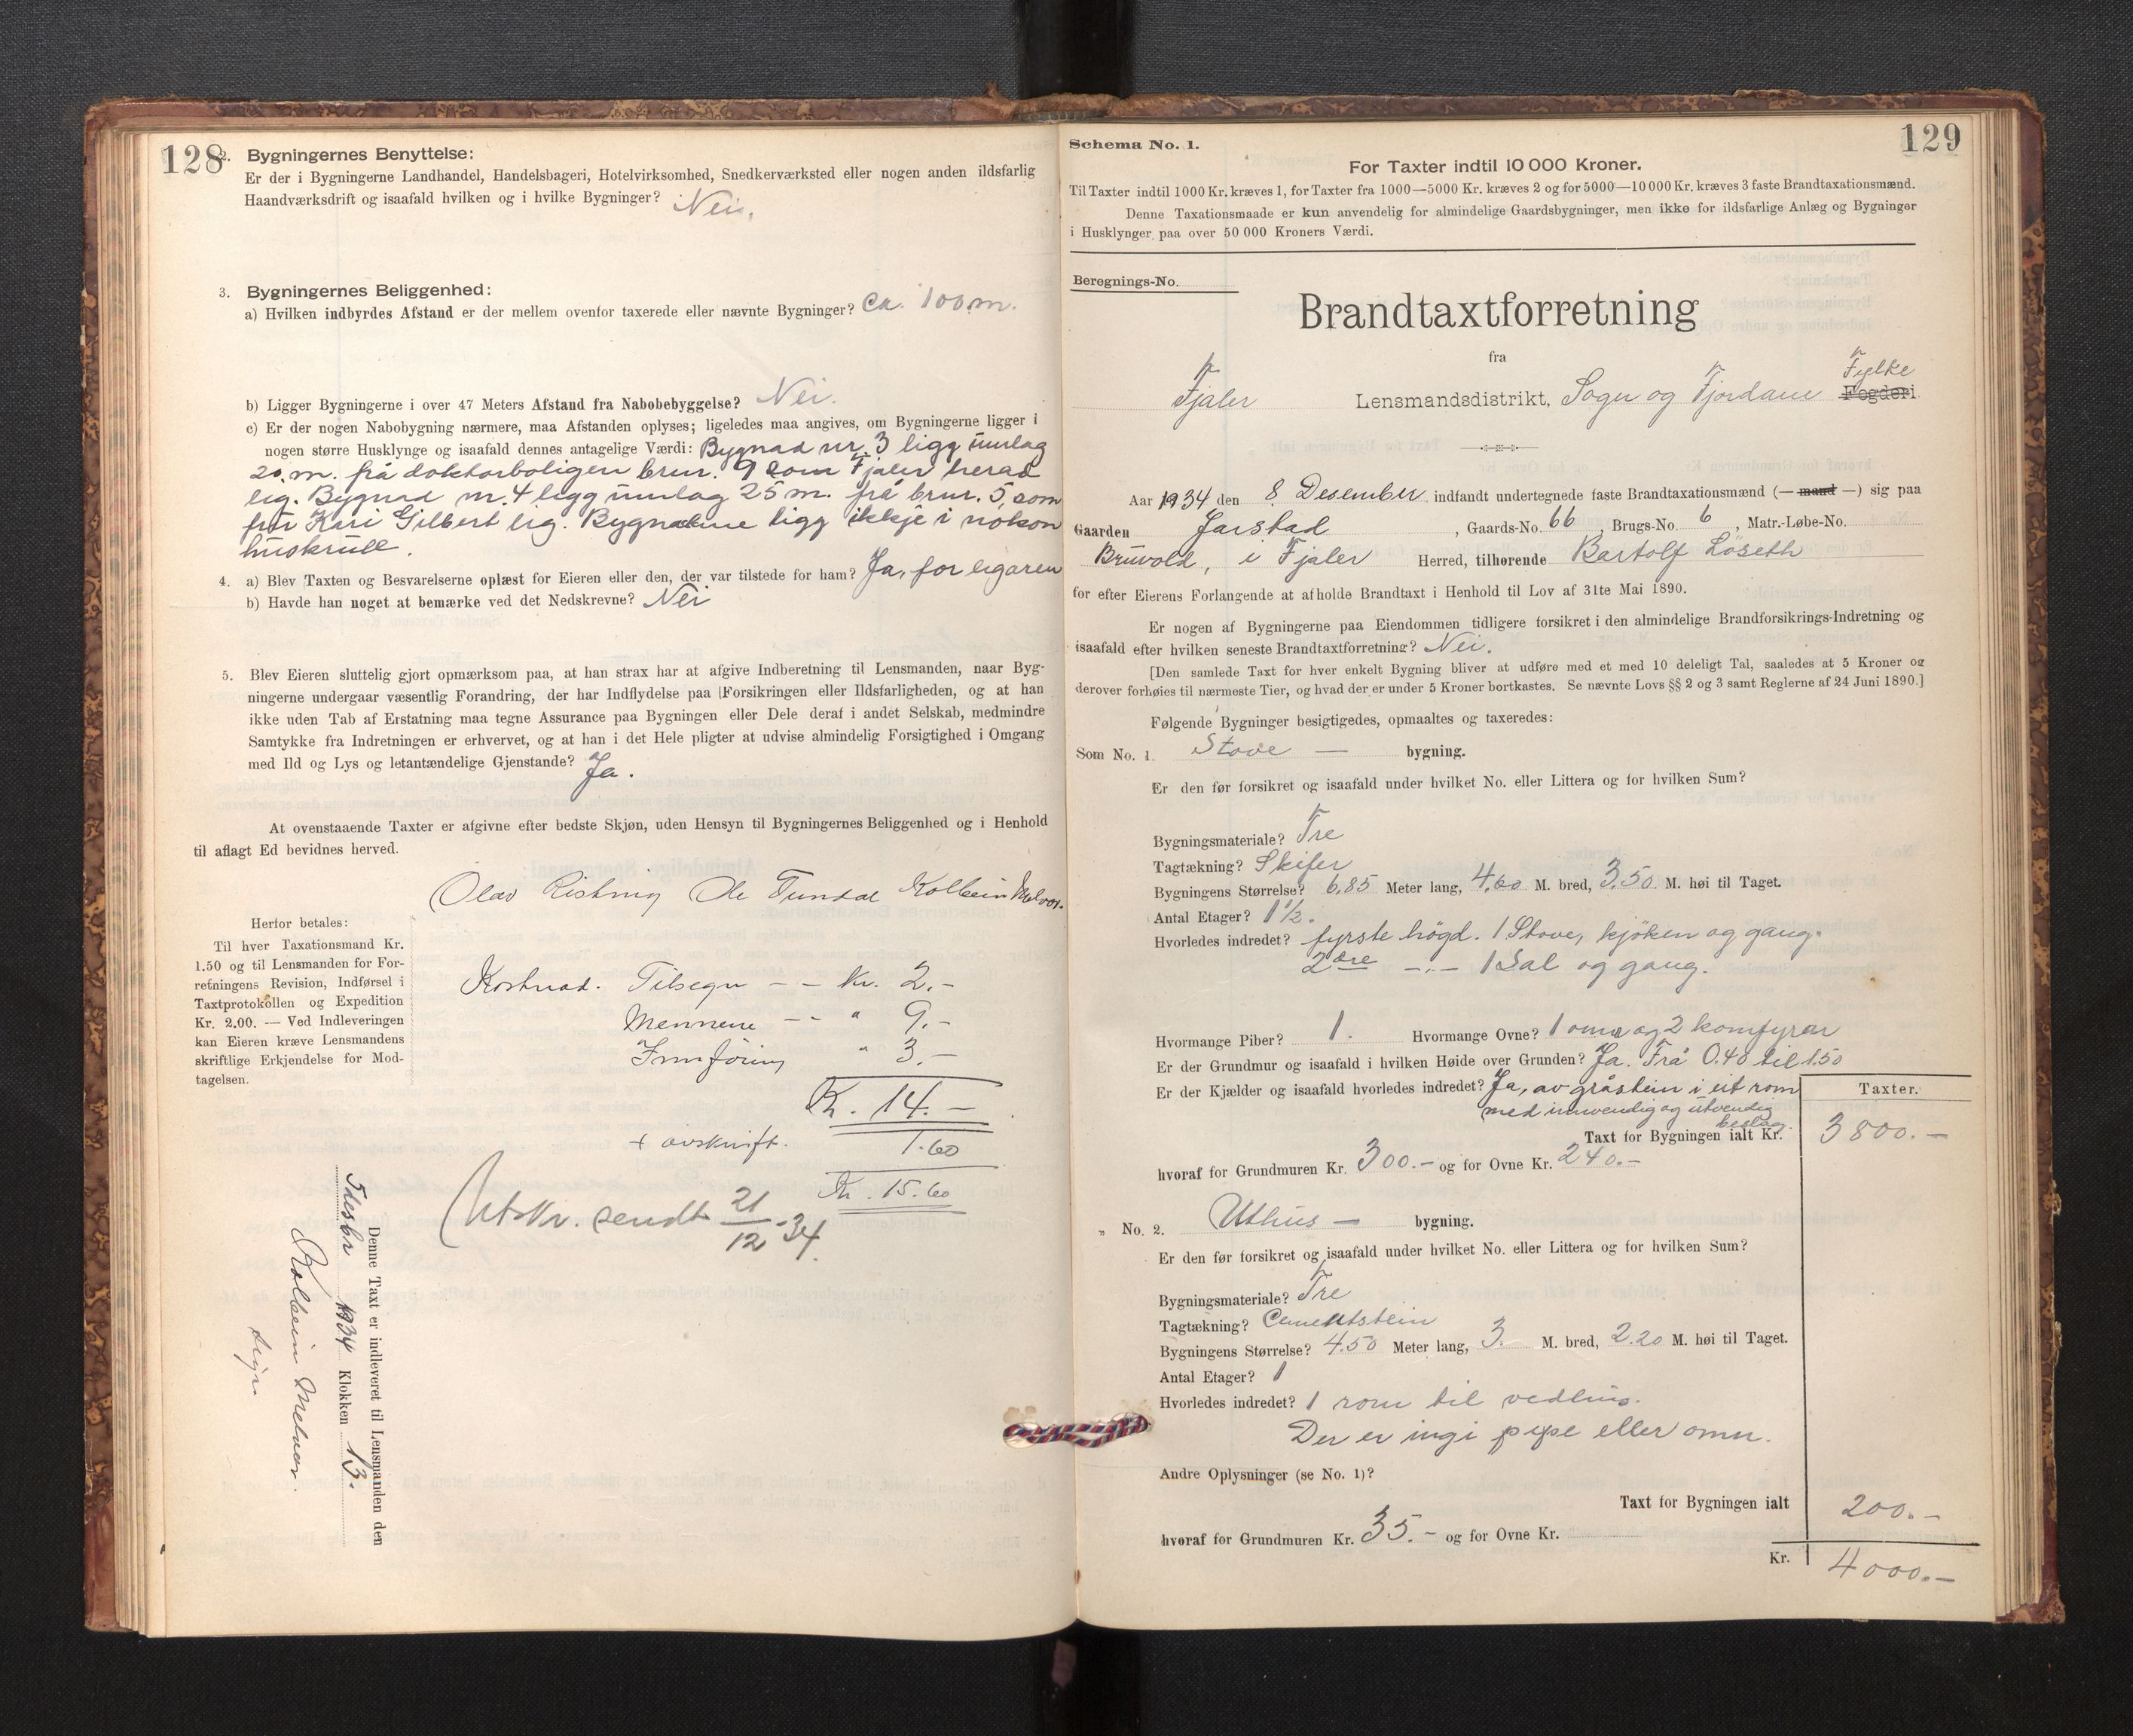 128
2. Bygningernes Benyttelse:
Er der i Bygningerne Landhandel, Handelsbageri, Hotelvirksomhed, Snedkerværksted eller nogen anden ildsfarlig
Haandværksdrift og isaafald hvilken og i hvilke Bygninger? Nei.
3. Bygningernes Beliggenhed:
a) Hvilken indbyrdes Afstand er der mellem ovenfor taxerede eller nævnte Bygninger? ca. 100 m.
b) Ligger Bygningerne i over 47 Meters Afstand fra Nabobebyggelse? Nei.
c) Er der nogen Nabobygning nærmere, maa Afstanden oplyses; ligeledes maa angives, om Bygningerne ligger i
nogen større Husklynge og isaafald dennes antagelige Værdi: Bygnad nr. 3 ligg umlag
20 m. frå doktorboligen brur. 9 som Fjaler herad
eig. Bygnad nr. 4 ligg umlag 25 m. frå brur. 5, som
fru Kari Gilbert eig. Bygnadene ligg ikkje i nokon
huskrull.
4. a) Blev Taxten og Besvarelserne oplæst for Eieren eller den, der var tilstede for ham? Ja, for eigaren
b) Havde han noget at bemærke ved det Nedskrevne? Nei
5. Blev Eieren sluttelig gjort opmærksom paa, at han strax har at afgive Indberetning til Lensmanden, naar Byg-
ningerne undergaar væsentlig Forandring, der har Indflydelse paa Forsikringen eller Ildsfarligheden, og at han
ikke uden Tab af Erstatning maa tegne Assurance paa Bygningen eller Dele deraf i andet Selskab, medmindre
Samtykke fra Indretningen er erhvervet, og at han i det Hele pligter at udvise almindelig Forsigtighed i Omgang
med Ild og Lys og letantændelige Gjenstande? Ja.
At ovenstaaende Taxter er afgivne efter bedste Skjøn, uden Hensyn til Bygningernes Beliggenhed og i Henhold
til aflagt Ed bevidnes herved.
Olav Ole Tundal Kolbein Melvær.
Herfor betales:
Til hver Taxationsmand Kr.
1.50 og til Lensmanden for For-
retningens Revision, Indførsel i
Taxtprotokollen og Expedition
Kr. 2.00. — Ved Indleveringen
kan Eieren kræve Lensmandens
skriftlige Erkjendelse for Mod-
tagelsen.
Kostnad. Tilsegn - - Kr. 2.-
Mennene - - " 9.-
Innföring " 3.-
Kr. 14.-
+ avskrift. 1.60
Kr. 15.60
Utskr. sendt 21/12-34.
Denne Taxt er indleveret til Lensmanden den
desbr 1934 Klokken 13.
Kolbein Melvær.
129
Schema No. 1.
For Taxter indtil 10 000 Kroner.
Til Taxter indtil 1000 Kr. kræves 1, for Taxter fra 1000—5000 Kr. kræves 2 og for 5000—10 000 Kr. kræves 3 faste Brandtaxationsmænd.
Denne Taxationsmaade er kun anvendelig for almindelige Gaardsbygninger, men ikke for ildsfarlige Anlæg og Bygninger
i Husklynger paa over 50 000 Kroners Værdi.
Beregnings-No.
Brandtaxtforretning
fra
Fjaler Lensmandsdistrikt, Sogn og Fjordane Fylke Fogderi.
Aar 1934 den 8. Desember indfandt undertegnede faste Brandtaxationsmænd (— mand —) sig paa
Gaarden Jarstad, Gaards-No. 66, Brugs-No. 6, Matr.-Løbe-No.
Bruvold, i Fjaler Herred, tilhørende Bartolf Löseth
for efter Eierens Forlangende at afholde Brandtaxt i Henhold til Lov af 31te Mai 1890.
Er nogen af Bygningerne paa Eiendommen tidligere forsikret i den almindelige Brandforsikrings-Indretning og
isaafald efter hvilken seneste Brandtaxtforretning? Nei.
[Den samlede Taxt for hver enkelt Bygning bliver at udføre med et med 10 deleligt Tal, saaledes at 5 Kroner og
derover forhøies til nærmeste Tier, og hvad der er under 5 Kroner bortkastes. Se nævnte Lovs §§ 2 og 3 samt Reglerne af 24 Juni 1890.]
Følgende Bygninger besigtigedes, opmaaltes og taxeredes:
Som No. 1. Stove — bygning.
Er den før forsikret og isaafald under hvilket No. eller Littera og for hvilken Sum?
Bygningsmateriale? Tre
Tagtækning? Skifer
Bygningens Størrelse? 6.85 Meter lang, 4.60 M. bred, 3.50 M. høi til Taget.
Antal Etager? 1 ½.
Hvorledes indredet? fyrste högd. 1 Stove, kjöken og gang.
2dre -"- 1 Sal og gang.
Hvormange Piber? 1. Hvormange Ovne? 1 omn og 2 komfyrar
Er der Grundmur og isaafald i hvilken Høide over Grunden? Ja. Frå 0.40 til 1.50
Er der Kjælder og isaafald hvorledes indredet? Ja, av gråstein i eit rom
med innvendig og utvendig
beslag.
Taxter.
Taxt for Bygningen ialt Kr. 3800.-
hvoraf for Grundmuren Kr. 300.- og for Ovne Kr. 240.-
" No. 2. Uthus — bygning.
Er den før forsikret og isaafald under hvilket No. eller Littera og for hvilken Sum?
Bygningsmateriale? Tre
Tagtækning? Cementstein
Bygningens Størrelse? 4.50 Meter lang, 3. M. bred, 2.20 M. høi til Taget.
Antal Etager? 1
Hvorledes indredet? 1 rom til vedhus.
Der er ingi pipe eller omn.
Andre Oplysninger (se No. 1)?
Taxt for Bygningen ialt 200.-
hvoraf for Grundmuren Kr. 35.- og for Ovne Kr.
Kr. 4000.-